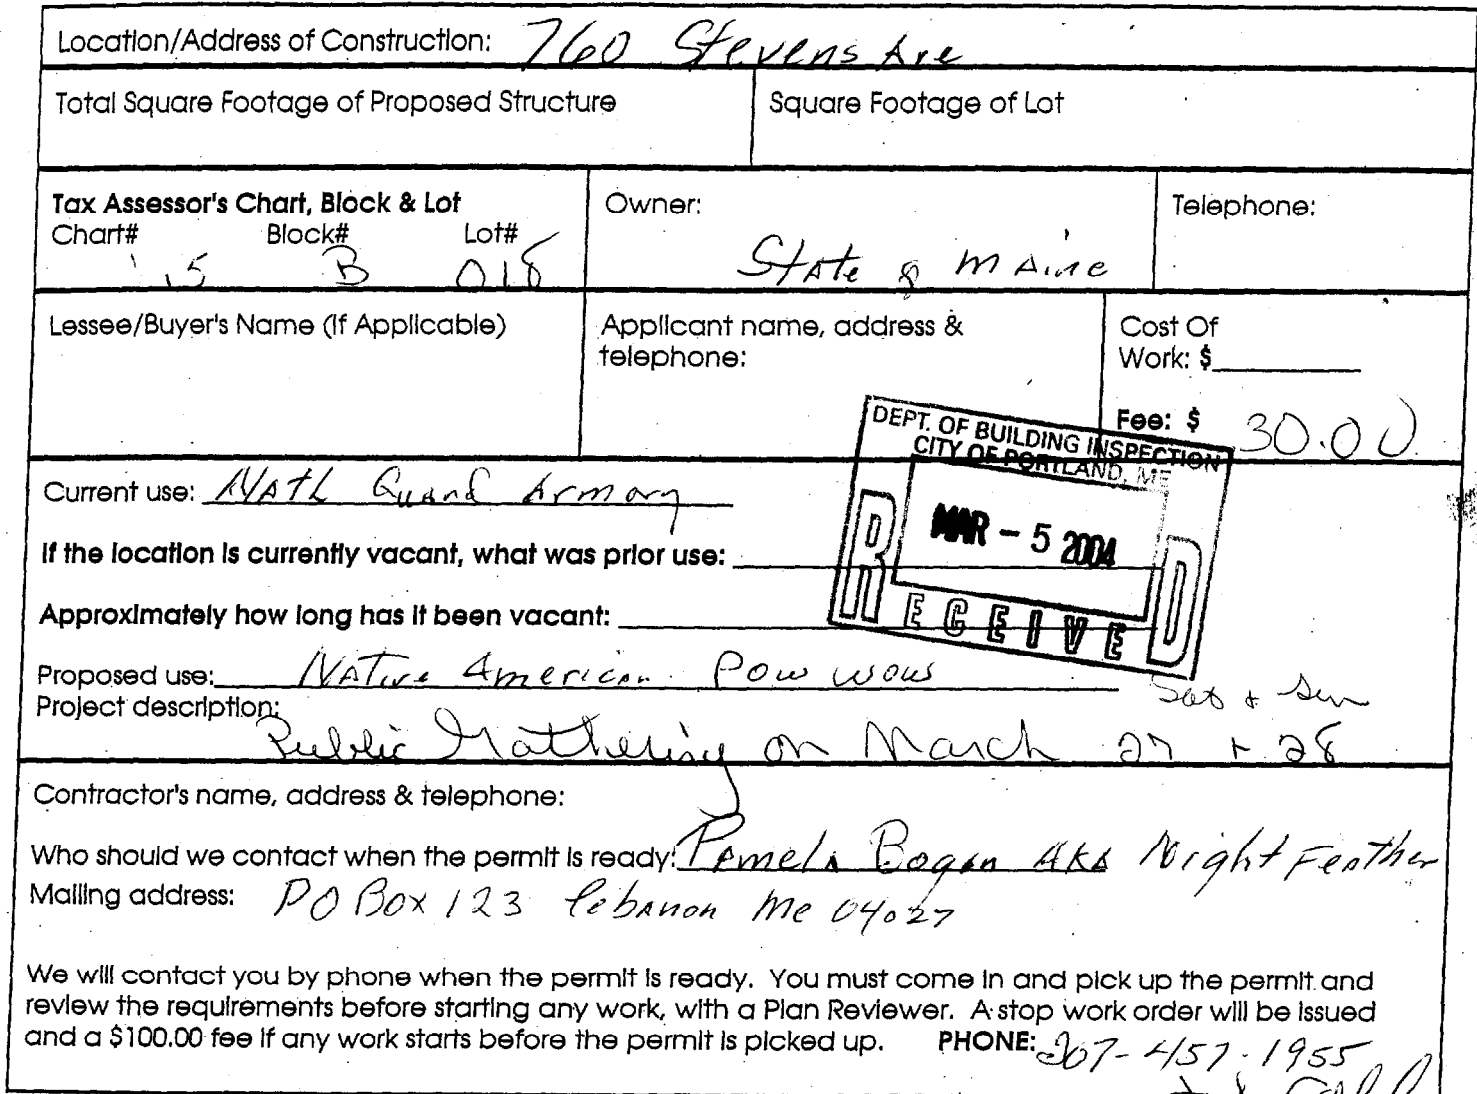 Location/Address of Construction: 760 Stevens Ave
Total Square Footage of Proposed Structure
Square Footage of Lot
Tax Assessor's Chart, Block & Lot
Chart# Block# Lot#
15 B 018
Owner:
State of Maine
Telephone:
Lessee/Buyer's Name (If Applicable)
Applicant name, address &
telephone:
Cost Of
Work: $
Fee: $ 30.00
DEPT. OF BUILDING INSPECTION
CITY OF PORTLAND, ME
MAR - 5 2004
RECEIVED
Current use: Natl Guard Armory
If the location is currently vacant, what was prior use:
Approximately how long has it been vacant:
Proposed use: Native American Pow wows
Sat & Sun
Project description:
Public Gathering on March 27 + 28
Contractor's name, address & telephone:
Who should we contact when the permit is ready: Pamela Bogan AKA Night Feather
Mailing address: PO Box 123 Lebanon Me 04027
We will contact you by phone when the permit is ready. You must come in and pick up the permit and
review the requirements before starting any work, with a Plan Reviewer. A stop work order will be issued
and a $100.00 fee if any work starts before the permit is picked up. PHONE: 207-457-1955